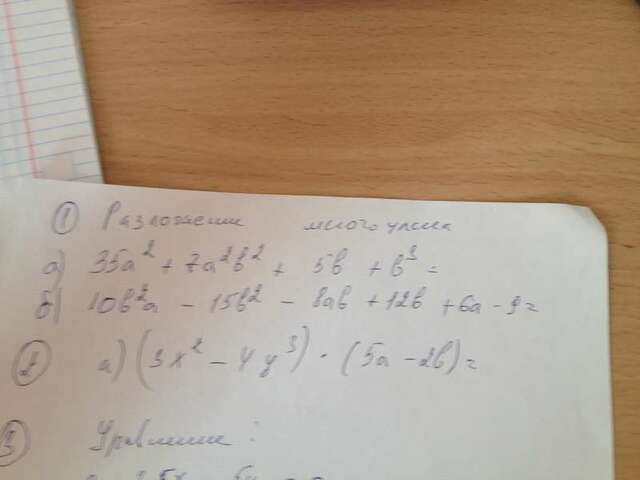 ① Разложение многочлена
а) 35a² + 7a²b² + 5b + b³ =
б) 10b²a - 15b² - 8ab + 12b + 6a - 9 =
② а) (3x² - 4y³) · (5a - 2b) =
③ Уравнение: